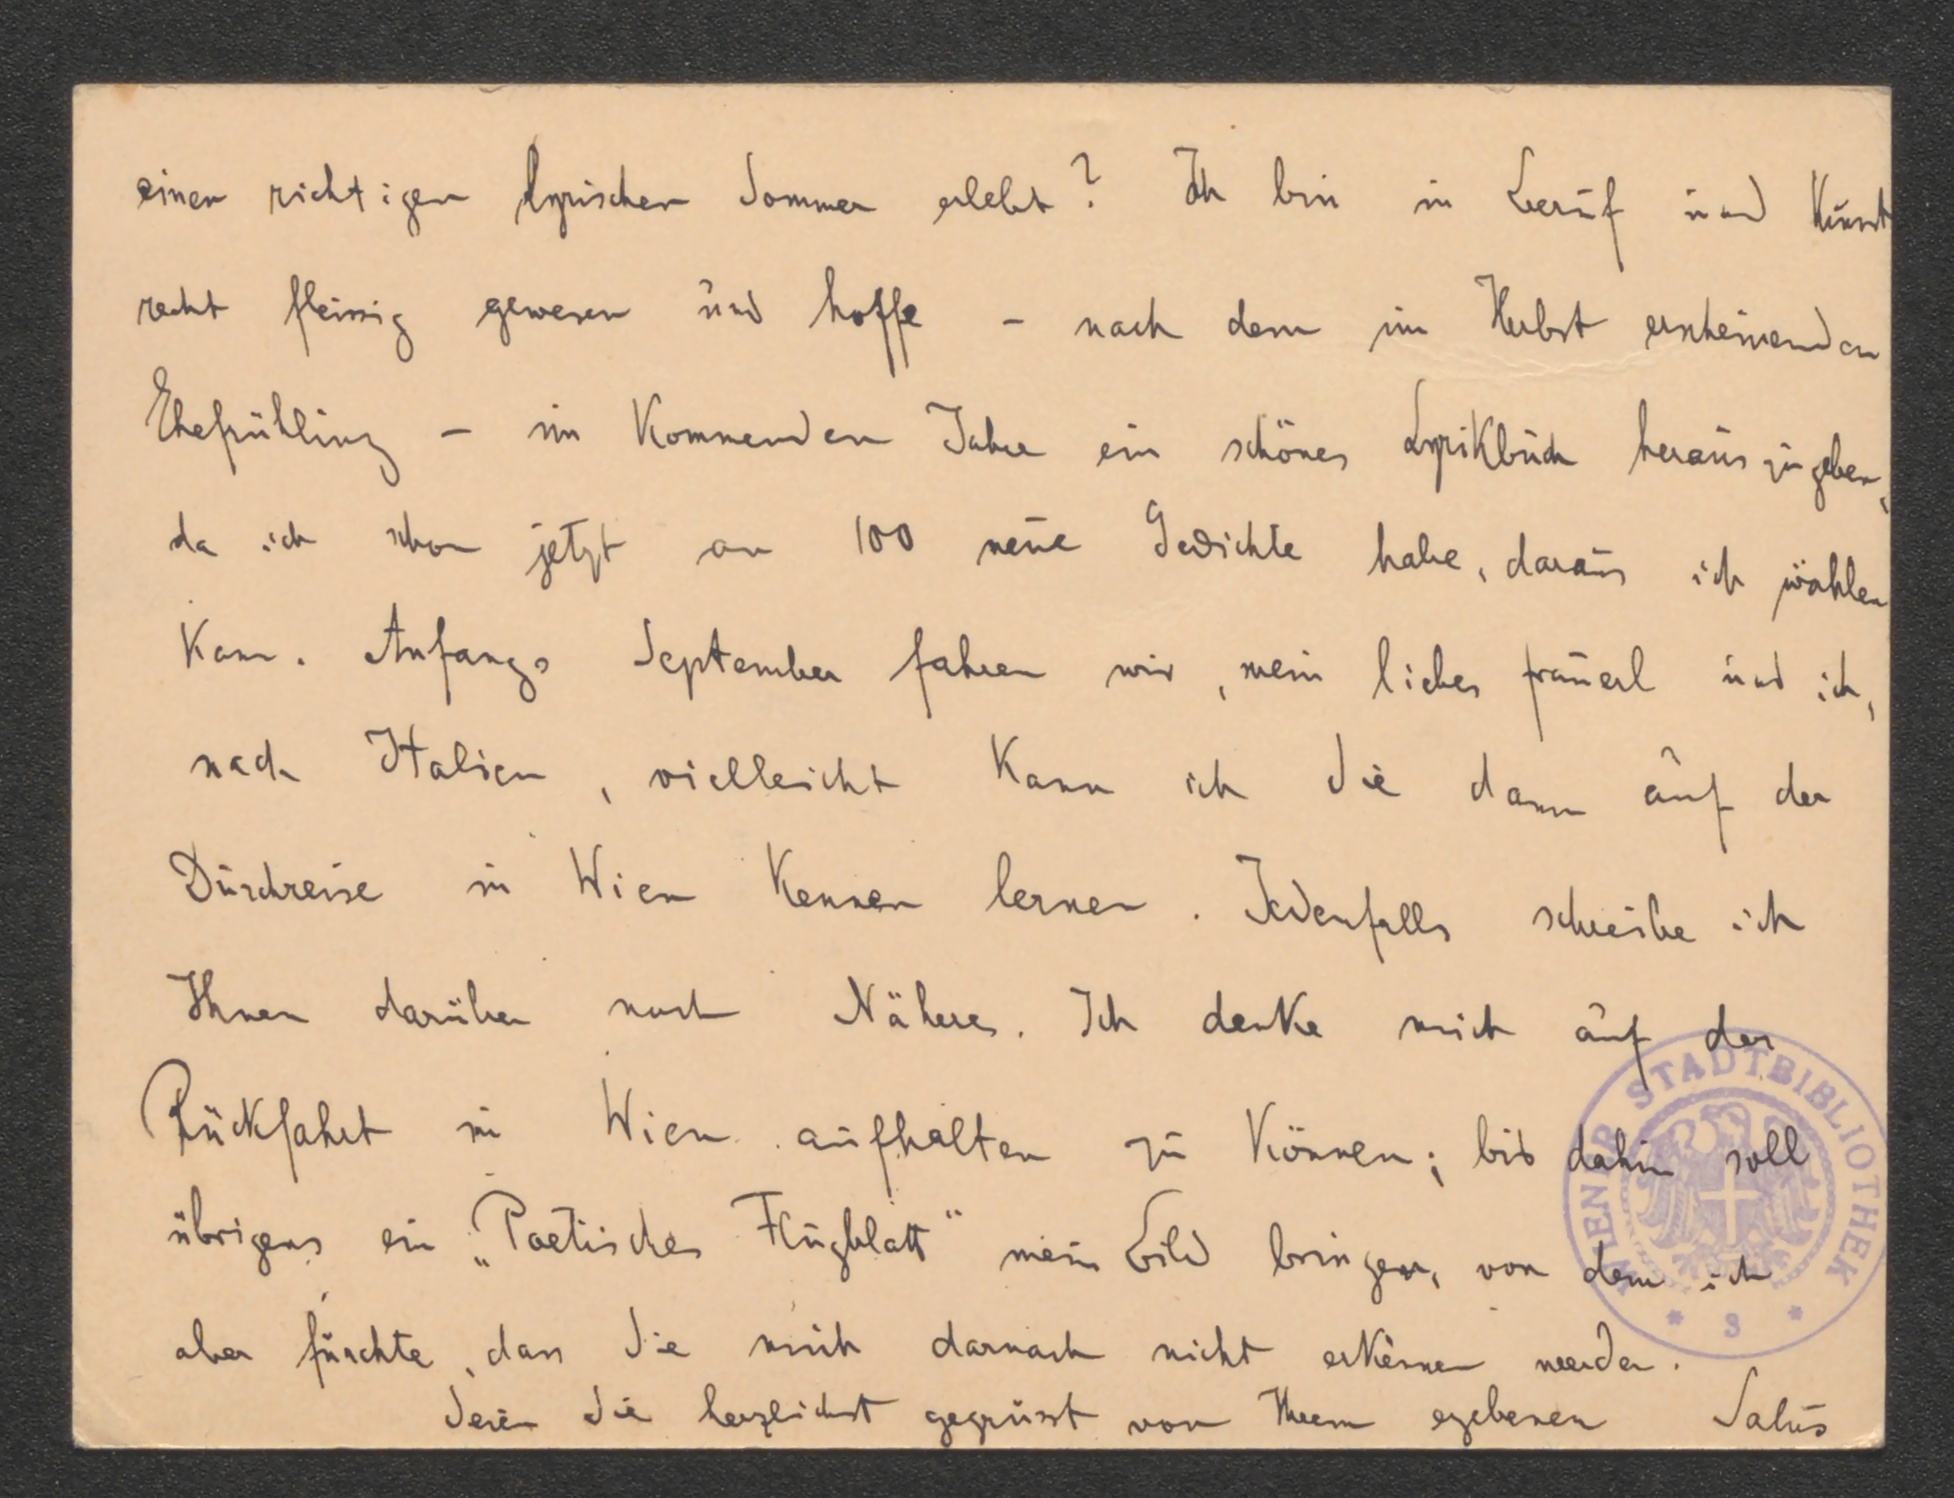 einen richtigen lyrischen Sommer erlebt? Ich bin in Beruf und Kunst
recht fleissig gewesen und hoffe – nach dem im Herbst erscheinenden
Ehefrühling – im kommenden Jahre ein schönes Lyrikbuch herauszugeben,
da ich schon jetzt an 100 neue Gedichte habe, daraus ich wählen
kann. Anfangs September fahren wir, mein liebes Frauerl und ich,
nach Italien, vielleicht kann ich Sie dann auf der
Durchreise in Wien kennen lernen. Jedenfalls schreibe ich
Ihnen darüber noch Näheres. Ich denke mich auf der
Rückfahrt in Wien aufhalten zu können; bis dahin soll
übrigens ein „Poetisches Flugblatt“ mein Bild bringen, von dem ich
aber fürchte, dass Sie mich darnach nicht erkennen werden.
Seien Sie herzlichst gegrüsst von Ihrem ergebenen Salus
WIENER STADTBIBLIOTHEK
* 3 *